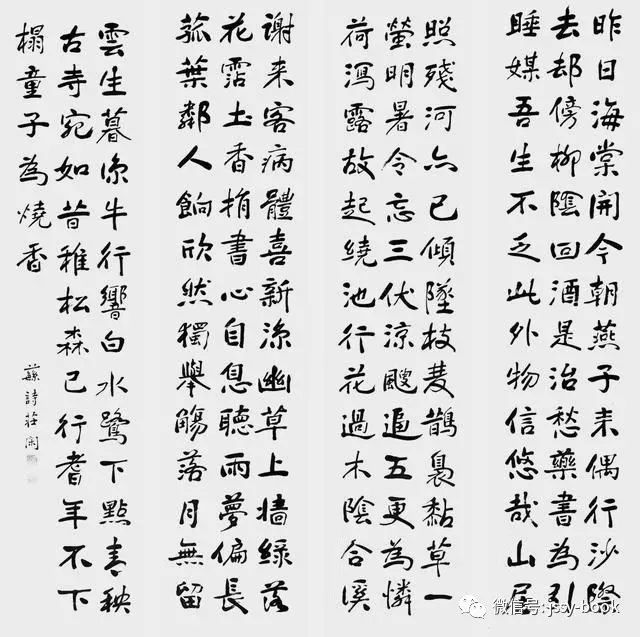 昨日海棠開今朝燕子来偶行沙際
去却傍柳陰回酒是治愁藥書為引
睡媒吾生不乏此外物信悠哉山居
照殘河亦已傾墜枝雙鵲裊黏草一
螢明暑令忘三伏凉颸逼五更為憐
荷瀉露故起繞池行花過木陰合溪
谢来客病體喜新凉幽草上墻綠落
花霑土香捐書心自息聽雨夢偏長
菰葉鄰人餉欣然獨舉觴落月無留
雲生暮凉牛行響白水鷺下點青秧
古寺宛如昔稚松森已行耆年不下
榻童子為燒香
蘇詩莊闲
微信号:jssy-book